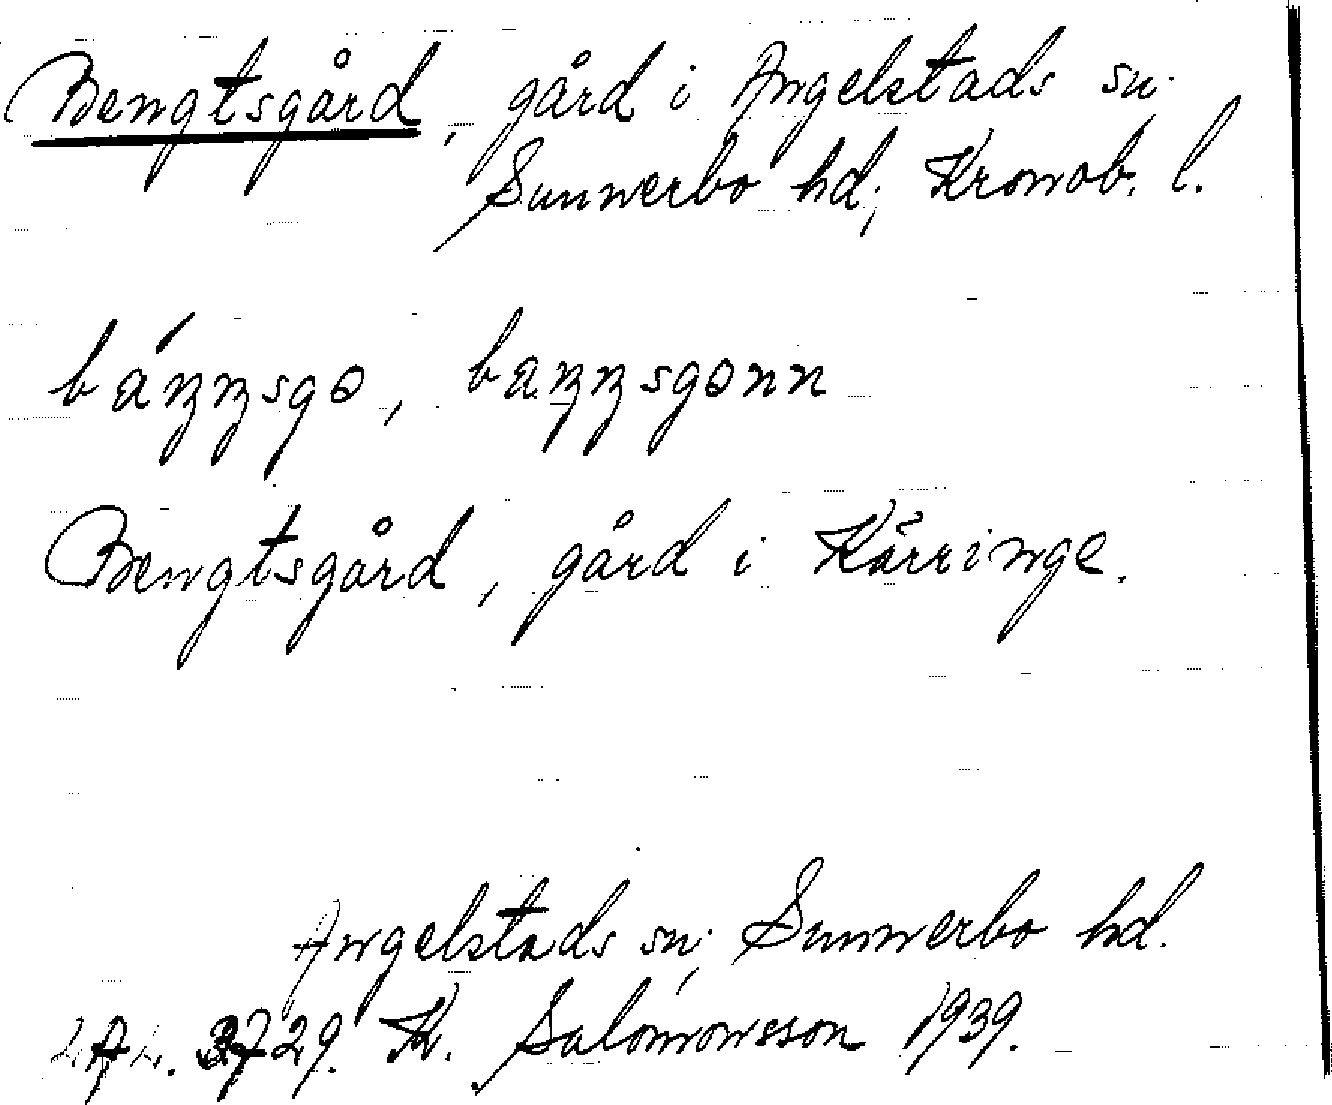 Bengtsgård, gård i Angelstads sn.
Sunnerbo hd, Kronob. l.
Bengtsgård, gård i Kärringe.
Angelstads sn, Sunnerbo hd.
3729. K. Salomonsson 1939.